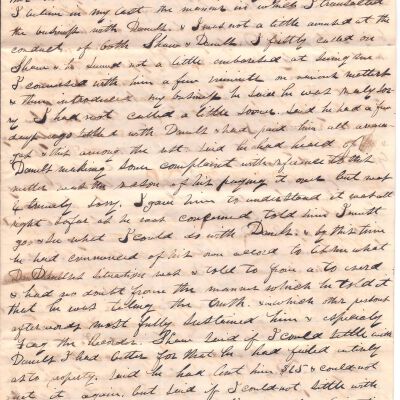 I believe in my last the manner in which I transacted
the business with Demelt & I was not a little amused at the
conduct of both Shaw & Demelt I firstly called on
Shaw & he seemed not a little embarrassed at seeing me
I conversed with him a few minutes on various matters
& then introduced my business he said he was really sor
ry I had not called a little sooner said he had a few
days ago settled with Demelt & had paid him all
& this among the rest said he had heard of
Demelt making some complaint with reference to this
matter was the reason of his paying it over but was
very sorry. I gave him to understand it was all
right so far as he was concerned told him I must
go & see what I could do with Demelt & by this time
he had commenced of his own accord to tell me what
Demelts situation was & told to you a word
& had no doubt from the manner which he told it
that he was telling the truth & which other persons
afterwards most fully sustained him & especially
Shaw said if I could settle with
Demelt I had better for that he had failed entirely
as to property. said he had lent him $65 & could not
get it again. but said if I could not settle with